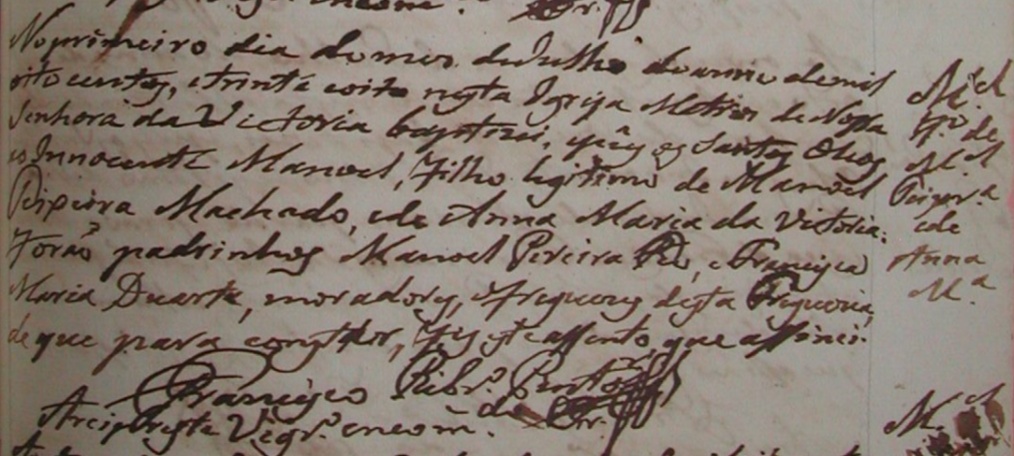 No primeiro dia do mes de Julho do anno de mil
oito centos, e trinta e oito nesta Igreja Matriz de Nossa
Senhora da Victoria baptizei, e puz os Santos Oleos
ao Innocente Manoel, Filho legitimo de Manoel
Pereira Machado, e de Anna Maria da Victoria.
Forão padrinhos Manoel Pereira, e Francisca
Maria Duarte, moradores, e freguezes desta Freguezia,
de que para constar, fiz este assento, que assinei.
Francisco Ribr.º
Arcipreste Vigr.º encom.do
M.el
F.º de
M.el
Pereir.a
e de
Anna
M.a
M.el